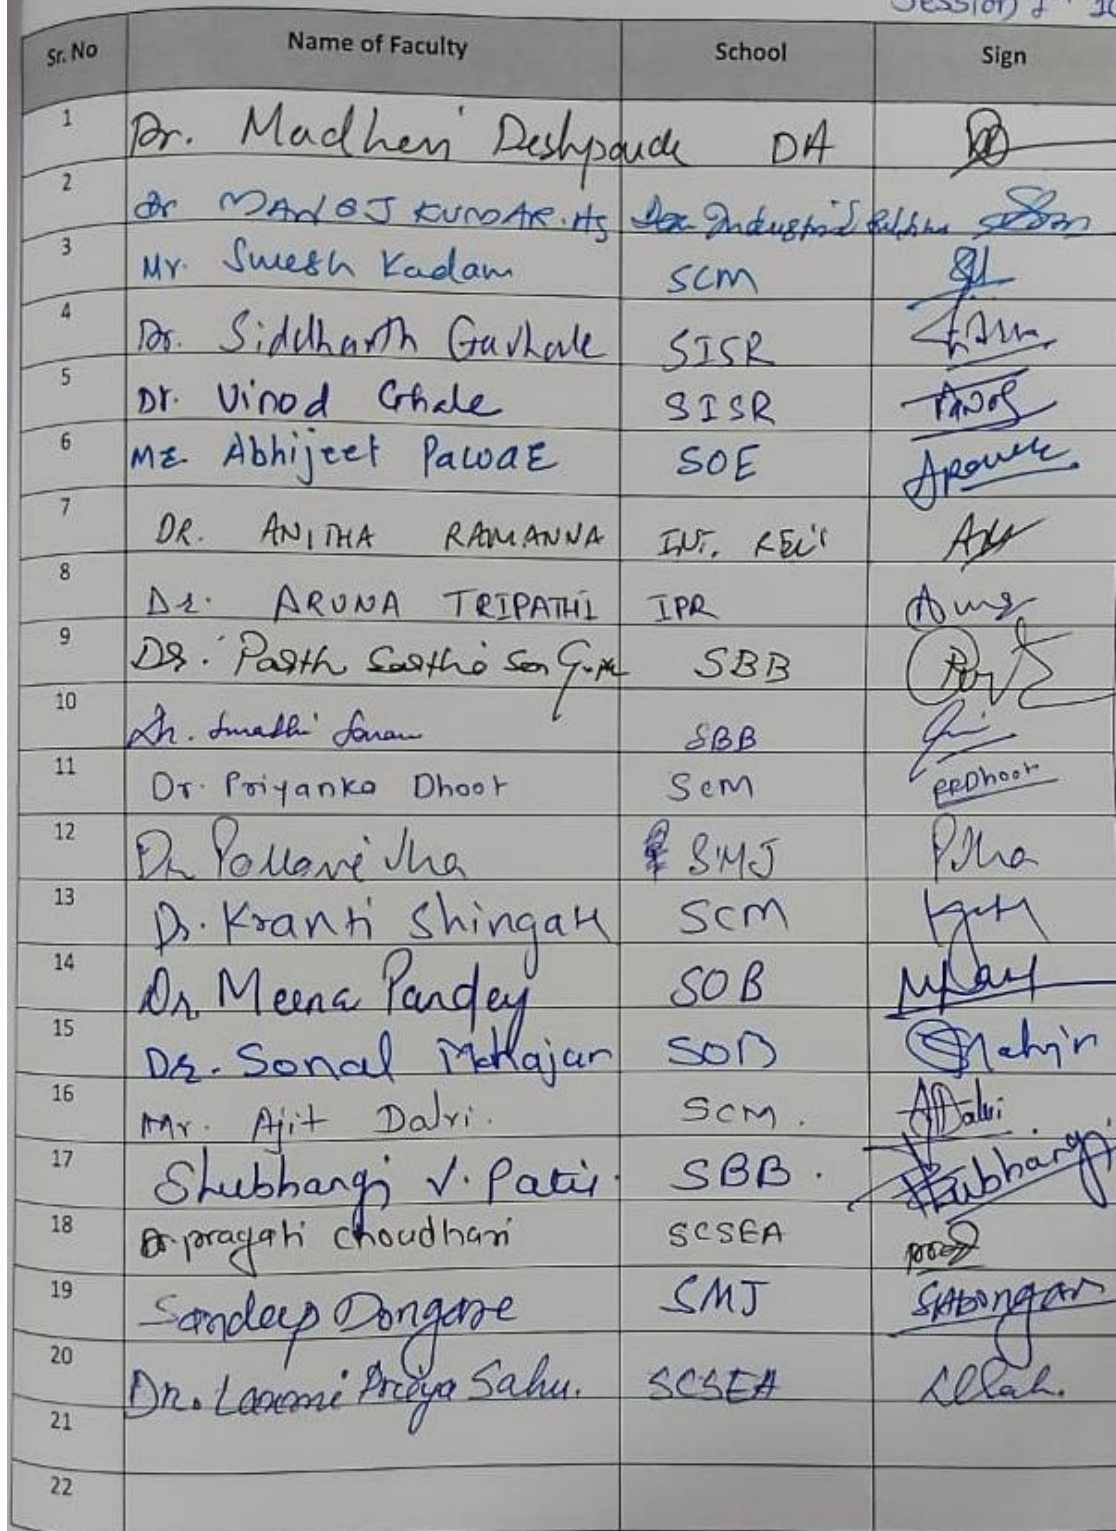 Session
Sr. No Name of Faculty School Sign
1 Dr. Madhuri Deshpande DA
2 Dr MANOJ KUMAR. Industrial
3 Mr. Suresh Kadam SCM
4 Dr. Siddharth Gavhale SISR
5 Dr. Vinod Ghale SISR
6 Mr. Abhijeet Pawar SOE
7 DR. ANITHA RAMANNA INT. REL'S
8 Dr. ARUNA TRIPATHI IPR
9 Dr. Parth Sarthi Sen Gupta SBB
10 Dr. SBB
11 Dr. Priyanka Dhoot SCM PRDhoot
12 Dr Pallavi Jha SMJ PJha
13 Dr. Kranti Shingate SCM
14 Dr. Meena Pandey SOB
15 Dr. Sonal Mahajan SOB
16 Mr. Ajit Dalvi. SCM. ADalvi
17 Shubhangi V. Patil. SBB. Shubhangi
18 Dr pragati choudhari SCSEA
19 Sandeep Dongare SMJ
20 Dr. Laxmi Priya Sahu. SCSEA
21
22